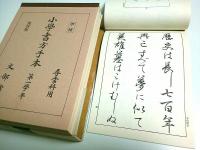 歴史は長き七百年
興亡すべて夢に似て
英雄墓はこけむしぬ
甲種
尋常科用
小學書方手本
文部省